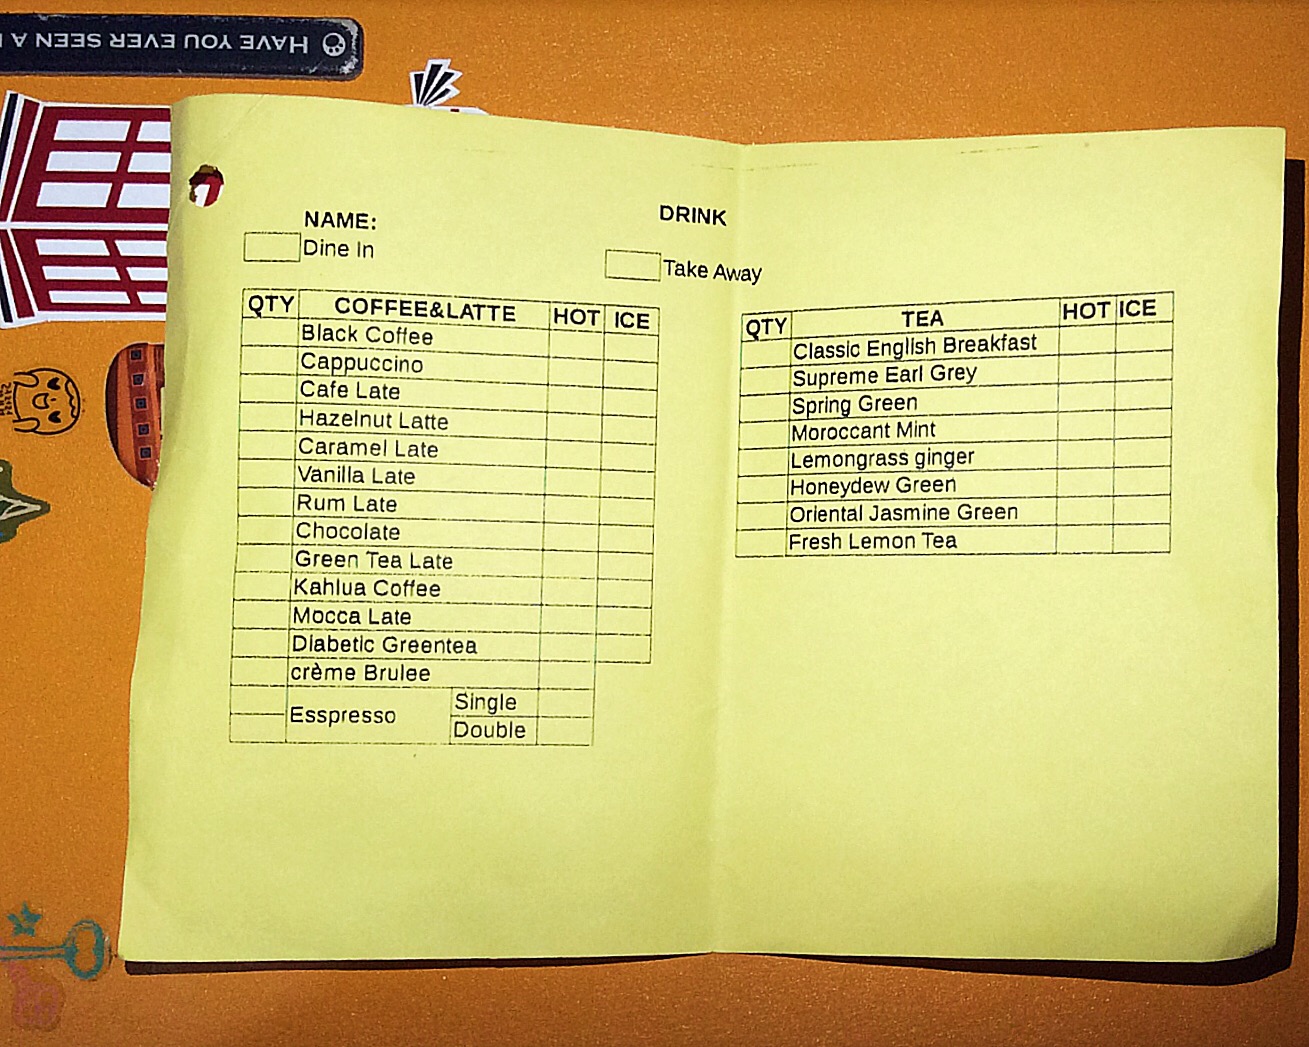 HAVE YOU EVER SEEN A
NAME:
DRINK
Dine In
Take Away
QTY COFFEE&LATTE HOT ICE
Black Coffee
Cappuccino
Cafe Late
Hazelnut Latte
Caramel Late
Vanilla Late
Rum Late
Chocolate
Green Tea Late
Kahlua Coffee
Mocca Late
Diabetic Greentea
crème Brulee
Esspresso
Single
Double
QTY TEA HOT ICE
Classic English Breakfast
Supreme Earl Grey
Spring Green
Moroccant Mint
Lemongrass ginger
Honeydew Green
Oriental Jasmine Green
Fresh Lemon Tea